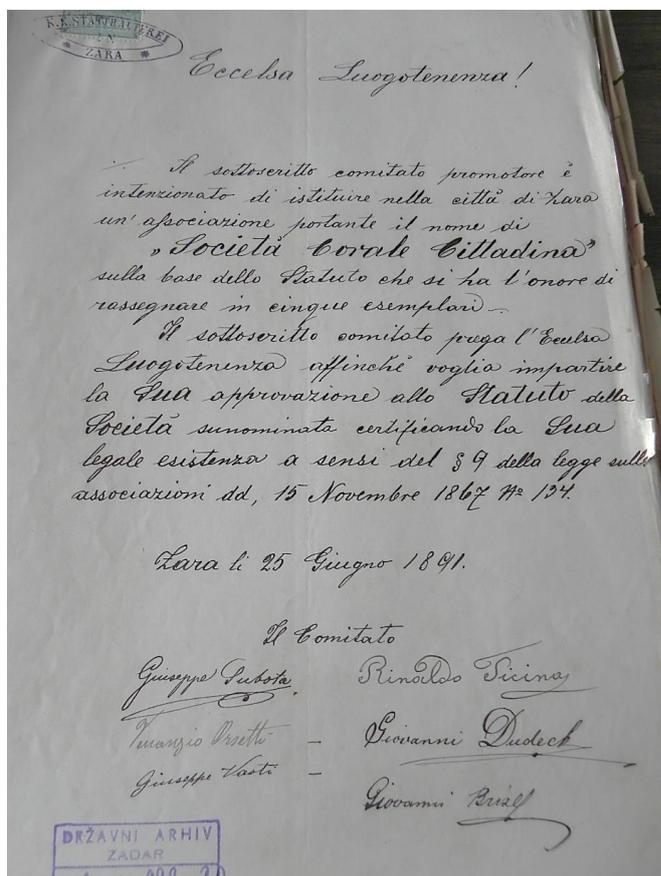 K.K. STATTHALTEREI
IN
ZARA
Eccelsa Luogotenenza!
Il sottoscritto comitato promotore è
intenzionato di istituire nella città di Zara
un' associazione portante il nome di
„Società Corale Cittadina”
sulla base dello Statuto che si ha l'onore di
rassegnare in cinque esemplari.
Il sottoscritto comitato prega l'Eccelsa
Luogotenenza affinché voglia impartire
la Sua approvazione allo Statuto della
Società sunominata certificando la Sua
legale esistenza a sensi del § 9 della legge sulle
associazioni dd, 15 Novembre 1867 No 134.
Zara li 25 Giugno 1891.
Il Comitato
Giuseppe Subota
Rinaldo Ticina
Venanzio Orsetti –
Giovanni Dudeck
Giuseppe Vasti –
Giovanni
DRŽAVNI ARHIV
ZADAR